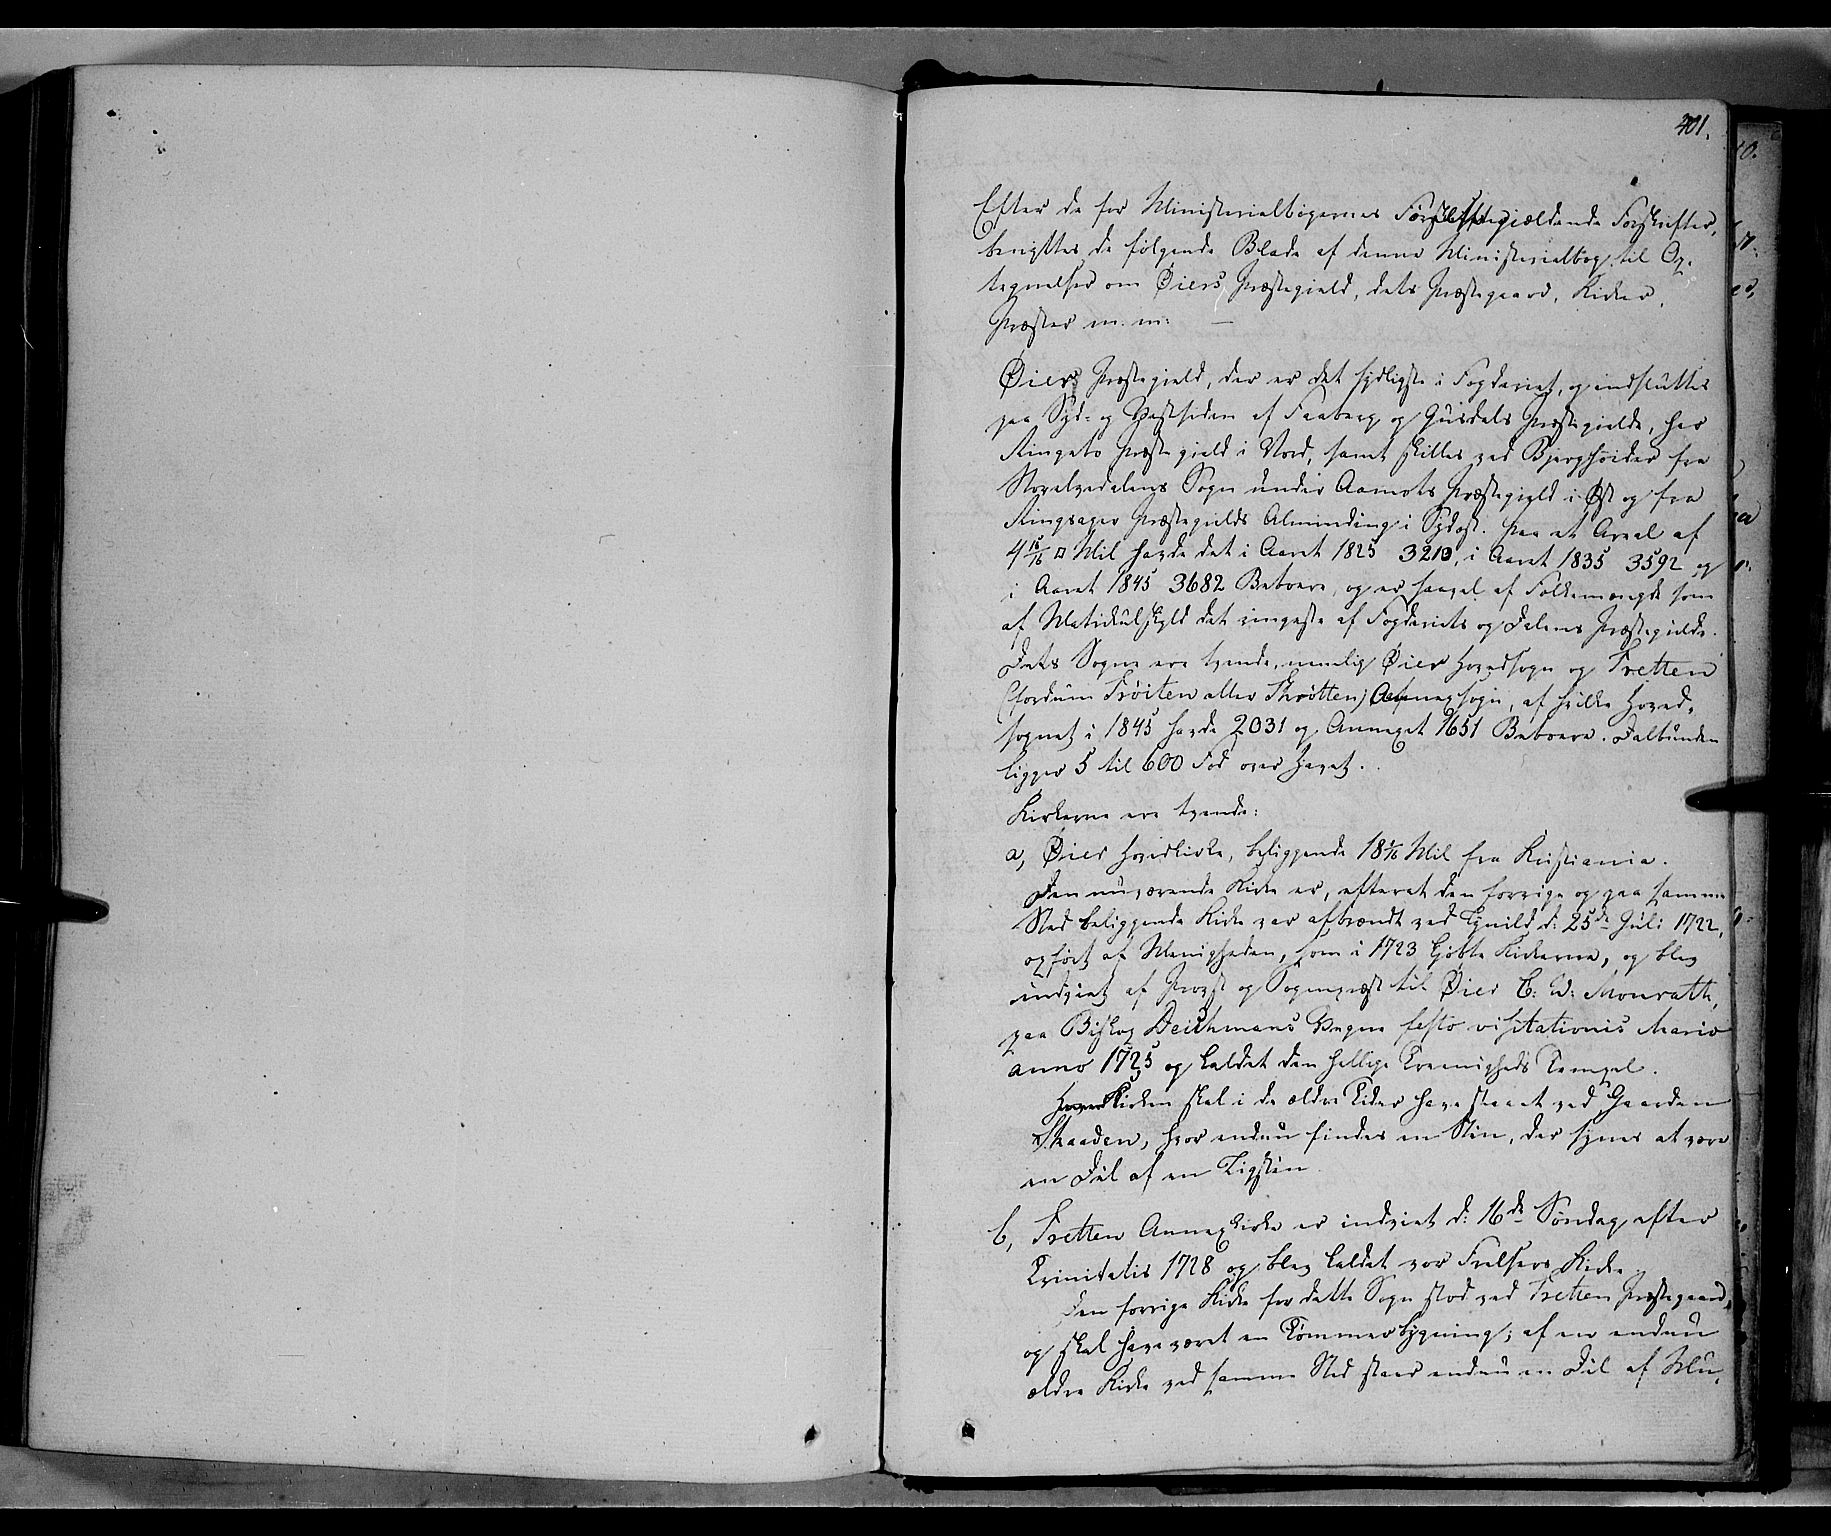 401.
Efter de for Ministerialbøgernes Førelse gjældende Forskrifter,
benyttes de følgende Blade af denne Ministerialbog til Op-
tegnelser om Øiers Præstegield, dets Præstegaard, Kirker,
Præster m. m: —
Øiers Præstegield, der er det sydligste i Fogderiet, og indsluttes
paa Syd- og Vestsiden af Faaberg og Gusdals Præstegielde, har
Ringebo Præstegield i Nord, samt skilles ved Bjergheider fra
Storelvedalens Sogn under Aamots Præstegield i Øst og fra
Ringsager Præstegields Alminding i Sydost. Paa et Areal af
4 15/16 □ Mil havde det i Aaret 1825 3213, i Aaret 1835 3592 og
i Aaret 1845 3682 Beboere, og er saavel af Folkemængde som
af Matrikulskyld det ringeste af Fogderiets og Dalens Præstegielde.
Dets Sogne ere tvende, nemlig Øier Hovedsogn og Tretten
(fordum Trøiten eller Thrøtten) Annexsogn, af hvilke Hoved-
sognet i 1845 havde 2031 og Annexet 1651 Beboere. Dalbunden
ligger 5 til 600 Fod over Havet.
Kirkerne ere tvende:
a, Øier Hovedkirke, beliggende 18 1/16 Mil fra Kristiania.
Den nuværende Kirke er, efterat den forrige og paa samme
Sted beliggende Kirke var afbrændt ved Lynild d: 25de Juli 1722,
opført af Menigheden, som i 1723 kjøbte Kirkerne, og blev
indviet af Provst og Sognepræst til Øier C: W: Monrath,
paa Biskop Deichmans Vegne festo visitationis Mariæ
anno 1725 og kaldet den hellige Treenigheds Tempel.
Kirken skal i de ældre Tider have staaet ved Gaarden
Skaaden, hvor endnu findes en Sten, der synes at være
en Del af en Ligsten.
b, Tretten Annexkirke er indviet d: 16de Søndag efter
Trinitatis 1728 og blev kaldet vor Frelsers Kirke.
Den forrige Kirke for dette Sogn stod ved Tretten Præstegaard,
og skal have været en Tømmerbygning; af en endnu
ældre Kirke ved samme Sted staar endnu en Del af Mu-